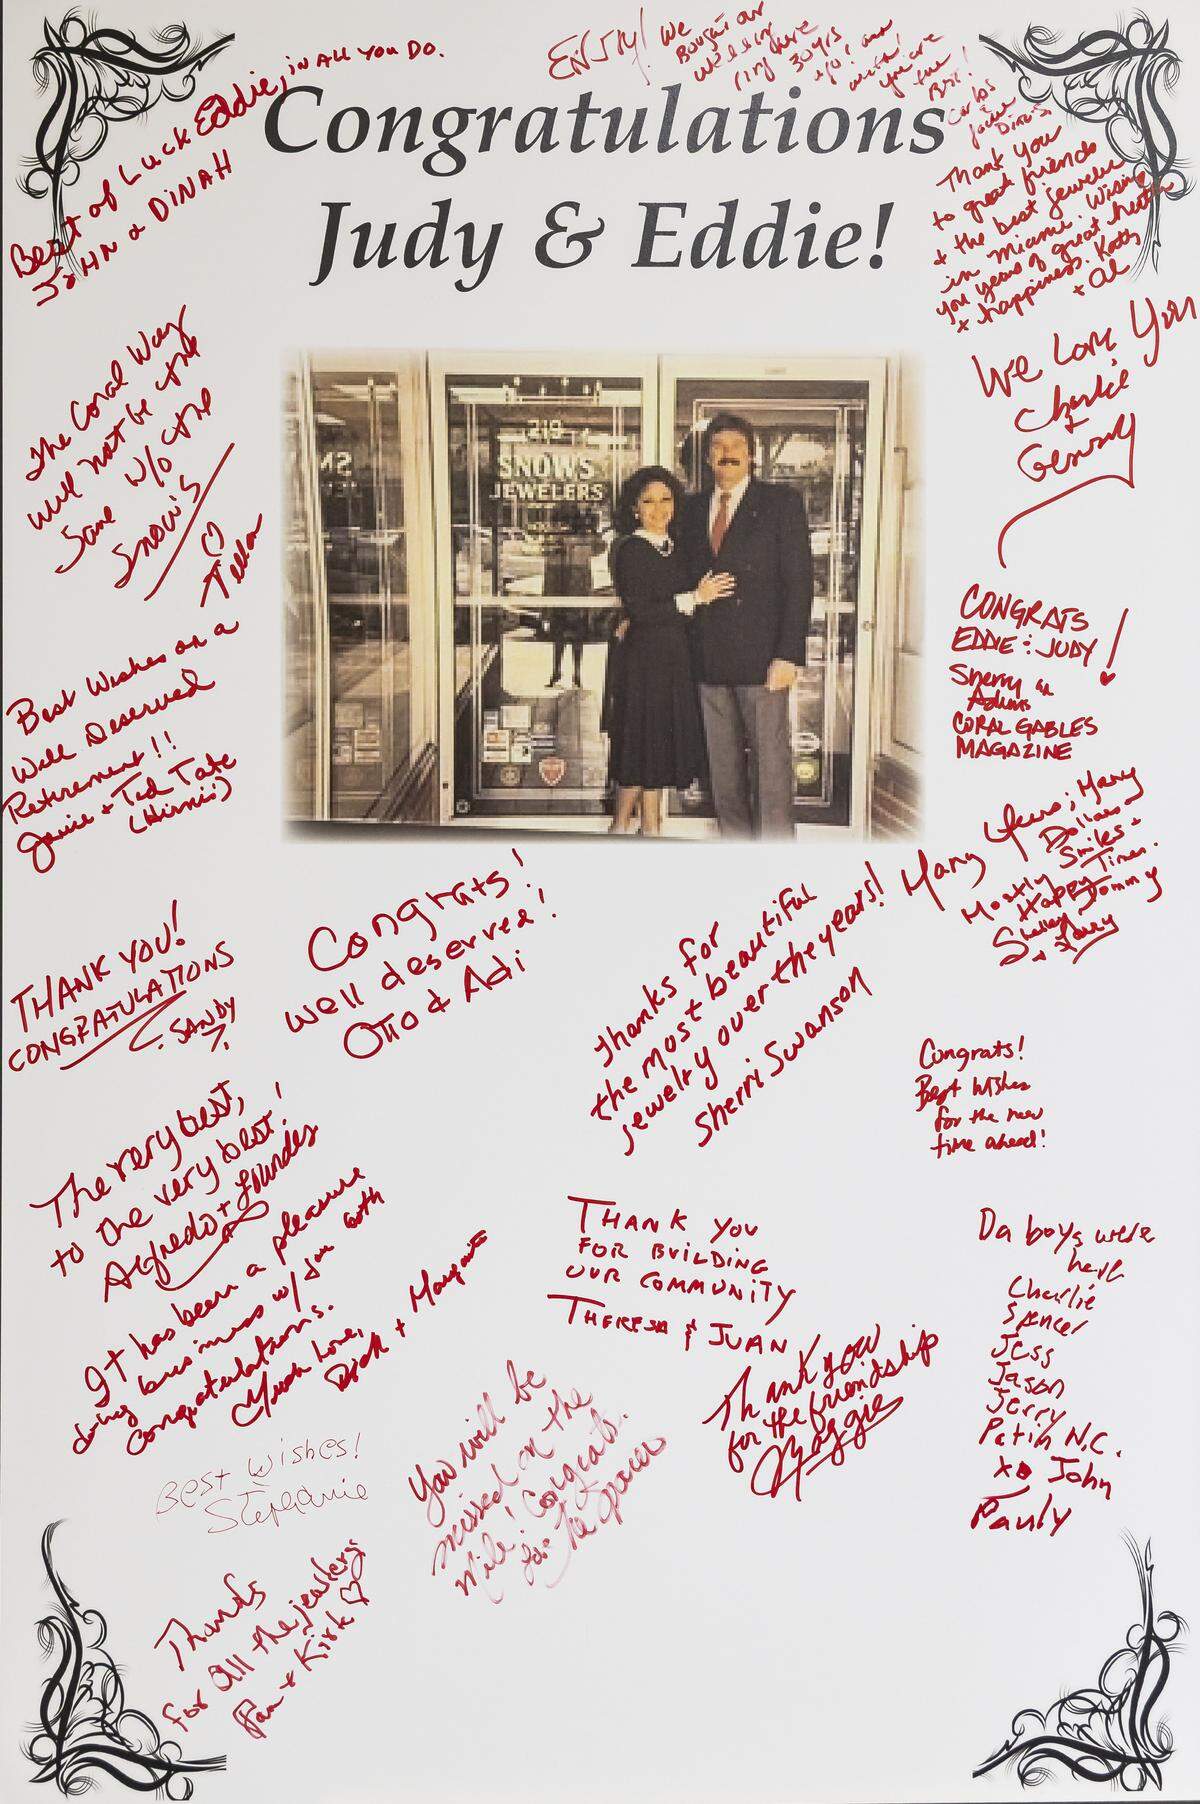 Congratulations
Judy & Eddie!
Best of Luck Eddie, in ALL YOU DO.
JOHN & DINAH
ENJOY! We
Bought our
wedding
ring here
30 yrs
ago! and
you are
the
Best!
Carlos
&
Jackie
Thank you
to great friends
+ the best jeweler
in Miami. Wising
you years of great health
+ happiness. Kathy
+ Al
We Love You
Charlie
+
The Coral Way
will not be the
same w/o the
Snow's
♡
SNOWS
JEWELERS
CONGRATS
EDDIE & JUDY!
Sherry
Adams
CORAL GABLES
MAGAZINE
Best Wishes on a
Well Deserved
Retirement!!
Janie + Ted Tate
Many Years; Many
Dollars
Mostly Smiles +
Happy Times.
Shelley, Tommy
+ Larry
THANK YOU!
CONGRATULATIONS
SANDY
Congrats!
well deserved!
Otto & Adi
Thanks for
the most beautiful
jewelry over the years!
Sherri Swanson
Congrats!
Best Wishes
for the new
time ahead!
The very best,
to the very best!
Alfredo + Lourdes
It has been a pleasure
doing business w/ you both
Congratulations.
Much Love,
Dick + Margarita
THANK YOU
FOR BUILDING
OUR COMMUNITY
THERESA & JUAN
Thank you
for the friendship
Maggie
Da boys were
here
Charlie
Spencer
Jess
Jason
Jerry
N.C.
xo John
Pauly
You will be
missed on the
Mile! Congrats.
Best Wishes!
Stephanie
Thanks
for all the jewelery
Pam + Kirk ♡